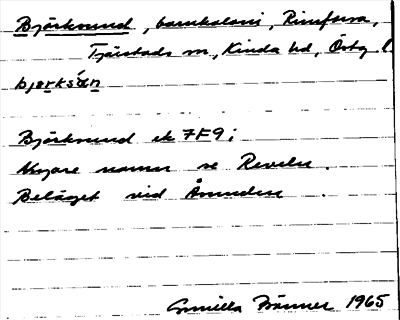 Björksund, barnkoloni, Rimforsa,
Tjärstads sn, Kinda hd, Östg l
bjɵrksún
Björksund ek 7F9i
Nyare namn se Reveln.
Beläget vid Åsunden.
Gunilla Bänner 1965